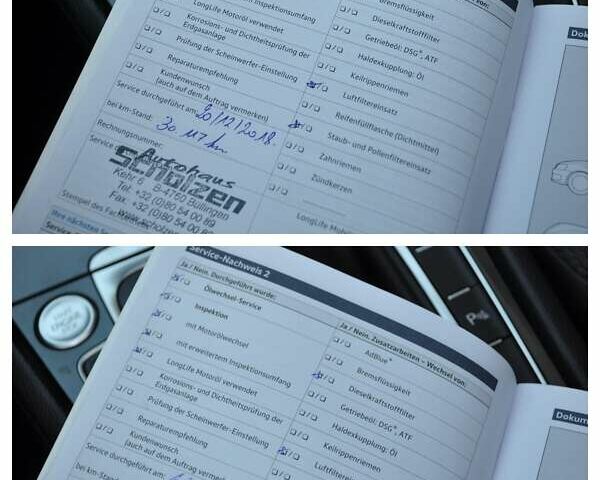 Bremsflüssigkeit
Inspektionsumfang
LongLife Motoröl verwendet
Dieselkraftstofffilter
Korrosions- und Dichtheitsprüfung der
Erdgasanlage
Getriebeöl: DSG®, ATF
Prüfung der Scheinwerfer-Einstellung
Haldexkupplung: Öl
Reparaturempfehlung
Keilrippenriemen
Kundenwunsch
(auch auf dem Auftrag vermerken)
Luftfiltereinsatz
Service durchgeführt am: 20/12/2018.
Reifenfüllflasche (Dichtmittel)
bei km-Stand: 30 117 km
Staub- und Pollenfiltereinsatz
Rechnungsnummer:
Zahnriemen
Service
Autohaus
SCHOLZEN
Zündkerzen
B-4760 Büllingen
Tel. +32 (0)80 54 00 89
Fax. +32 (0)80 54 00 89
Stempel des
LongLife Motor
Ihre nächsten
Dok
Service-Nachweis 2
Ja / Nein. Durchgeführt wurde:
Ölwechsel-Service
Inspektion
Ja / Nein. Zusatzarbeiten – Wechsel von:
mit Motorölwechsel
AdBlue®
mit erweitertem Inspektionsumfang
Bremsflüssigkeit
LongLife Motoröl verwendet
Dieselkraftstofffilter
Korrosions- und Dichtheitsprüfung der
Erdgasanlage
Getriebeöl: DSG®, ATF
Prüfung der Scheinwerfer-Einstellung
Haldexkupplung: Öl
Reparaturempfehlung
Keilrippenriemen
Kundenwunsch
(auch auf dem Auftrag vermerken)
Luftfiltereinsatz
Service durchgeführt am:
bei km-Stand:
START
ENGINE
STOP
P
Dokum